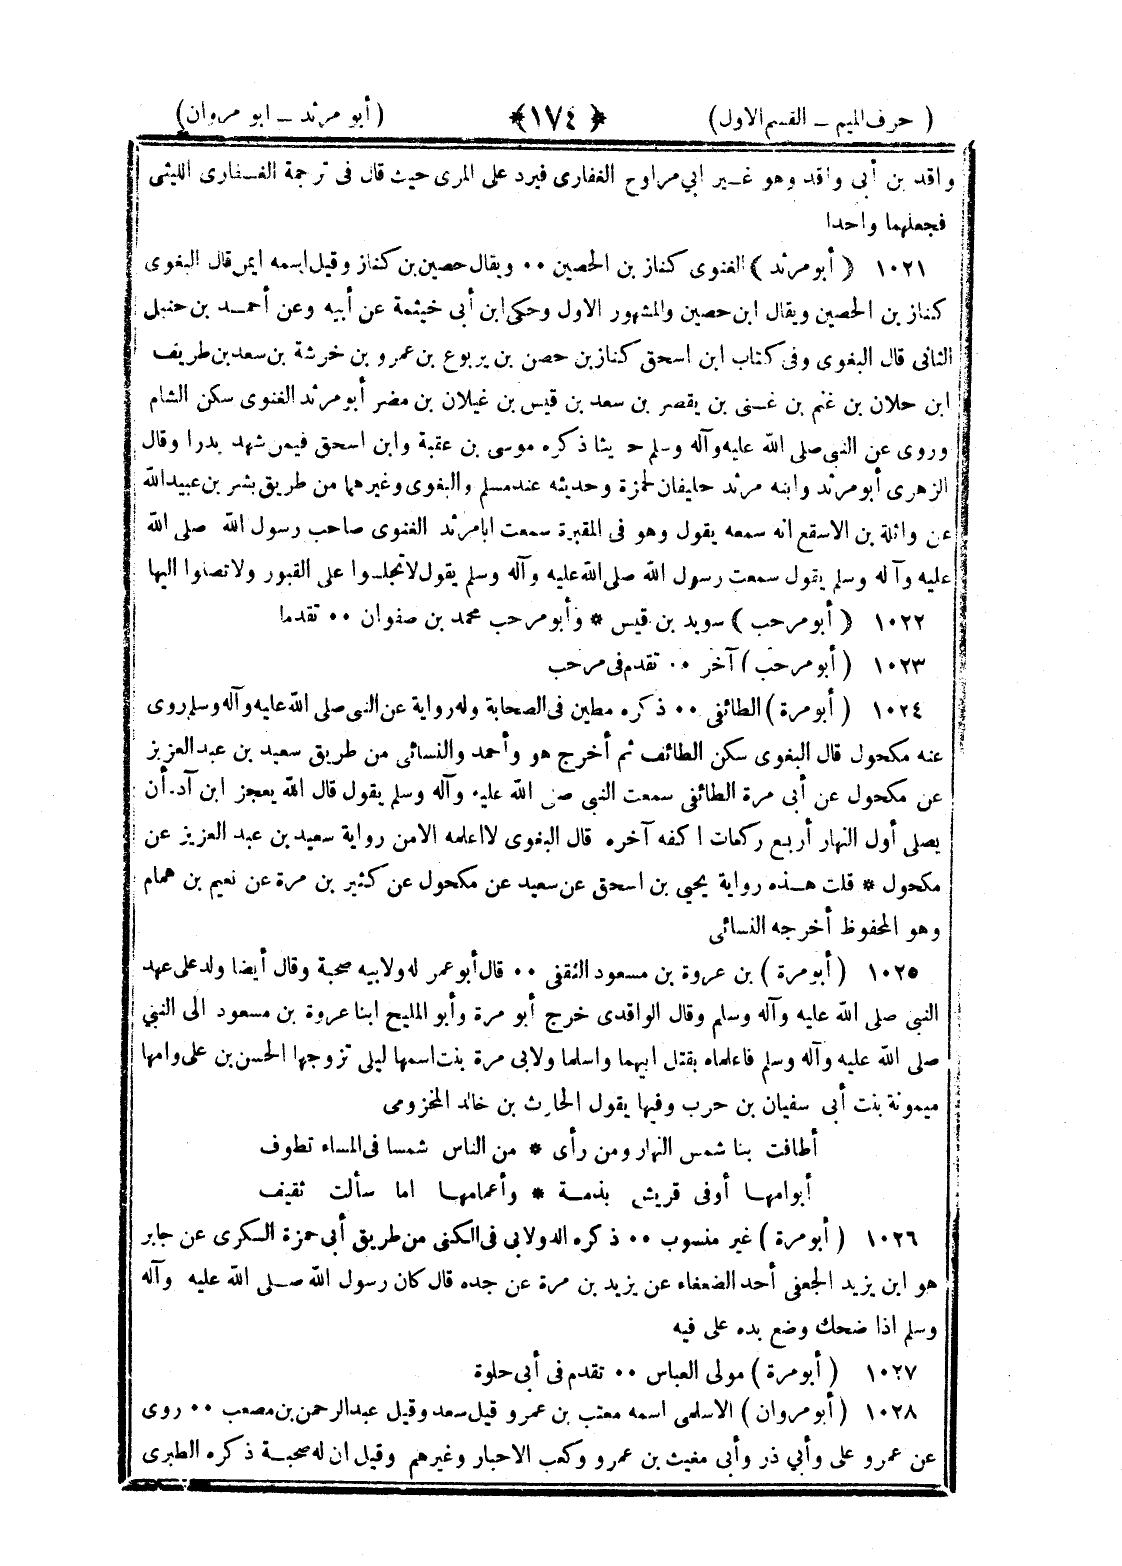 ( حرف الميم ــ القسم الاول) ﴿ ١٧٤ ﴾ ( أبو مرثد ــ ابو مروان)
واقد بن أبى واقد وهو غير ابي مراوح الغفارى فيرد على المزى حيث قال فى ترجمة الغفارى الليثى
فجعلهما واحدا
١٠٢١ ﴿ أبو مرثد ﴾ الغنوى كناز بن الحصين ٠٠ ويقال حصين بن كناز وقيل اسمه ايمن قال البغوى
كناز بن الحصين ويقال ابن حصين والمشهور الاول وحكى ابن أبى خيثمة عن أبيه وعن أحمد بن حنبل
الثانى قال البغوى وفى كتاب ابن اسحق كناز بن حصن بن يربوع بن عمرو بن خرشة بن سعد بن طريف
ابن حلان بن غنم بن غنى بن يقصر بن سعد بن قيس بن غيلان بن مضر أبو مرثد الغنوى سكن الشام
وروى عن النبي صلى الله عليه وآله وسلم حديثا ذكره موسى بن عقبة وابن اسحق فيمن شهد بدرا وقال
الزهرى أبو مرثد وابنه مرثد حليفان لحمزة وحديثه عند مسلم والبغوى وغيرهما من طريق بشر بن عبيد الله
عن واثلة بن الاسقع انه سمعه يقول وهو فى المقبرة سمعت ابا مرثد الغنوى صاحب رسول الله صلى الله
عليه وآله وسلم يقول سمعت رسول الله صلى الله عليه وآله وسلم يقول لا تجلسوا على القبور ولا تصلوا اليها
١٠٢٢ ﴿ أبو مرحب ﴾ سويد بن قيس * وأبو مرحب محمد بن صفوان ٠٠ تقدما
١٠٢٣ ( أبو مرحب ) آخر ٠٠ تقدم فى مرحب
١٠٢٤ ( أبو مرة ) الطائفى ٠٠ ذكره مطين فى الصحابة وله رواية عن النبى صلى الله عليه وآله وسلم روى
عنه مكحول قال البغوى سكن الطائف ثم أخرج هو وأحمد والنسائى من طريق سعيد بن عبد العزيز
عن مكحول عن أبى مرة الطائفى سمعت النبي صلى الله عليه وآله وسلم يقول قال الله يعجز ابن آدم أن
يصلى أول النهار أربع ركعات اكفه آخره قال البغوى لا اعلمه الا من رواية سعيد بن عبد العزيز عن
مكحول * قلت هذه رواية يحيى بن اسحق عن سعيد عن مكحول عن كثير بن مرة عن نعيم بن همام
وهو المحفوظ أخرجه النسائى
١٠٢٥ ( أبو مرة ) بن عروة بن مسعود الثقفى ٠٠ قال أبو عمر له ولابيه صحبة وقال أيضا ولد على عهد
النبى صلى الله عليه وآله وسلم وقال الواقدى خرج أبو مرة وأبو المليح ابنا عروة بن مسعود الى النبي
صلى الله عليه وآله وسلم فاعلماه بقتل ابيهما واسلما ولابى مرة بنت اسمها ليلى تزوجها الحسن بن على وامها
ميمونة بنت أبى سفيان بن حرب وفيها يقول الحارث بن خالد المخزومى
أطافت بنا شمس النهار ومن رأى * من الناس شمسا فى المساء تطوف
أبوامها أوفى قريش بذمة * وأعمامها اما سألت ثقيف
١٠٢٦ ( أبو مرة ) غير منسوب ٠٠ ذكره الدولابى فى الكنى من طريق أبى حمزة السكرى عن جابر
هو ابن يزيد الجعفى أحد الضعفاء عن يزيد بن مرة عن جده قال كان رسول الله صلى الله عليه وآله
وسلم اذا ضحك وضع يده على فيه
١٠٢٧ ( أبو مرة ) مولى العباس ٠٠ تقدم فى أبى حلوة
١٠٢٨ ( أبو مروان ) الاسلمى اسمه معتب بن عمرو قيل سعد وقيل عبد الرحمن بن مصعب ٠٠ روى
عن عمرو على وأبي ذر وأبى مغيث بن عمرو وكعب الاحبار وغيرهم وقيل ان له صحبة ذكره الطبرى